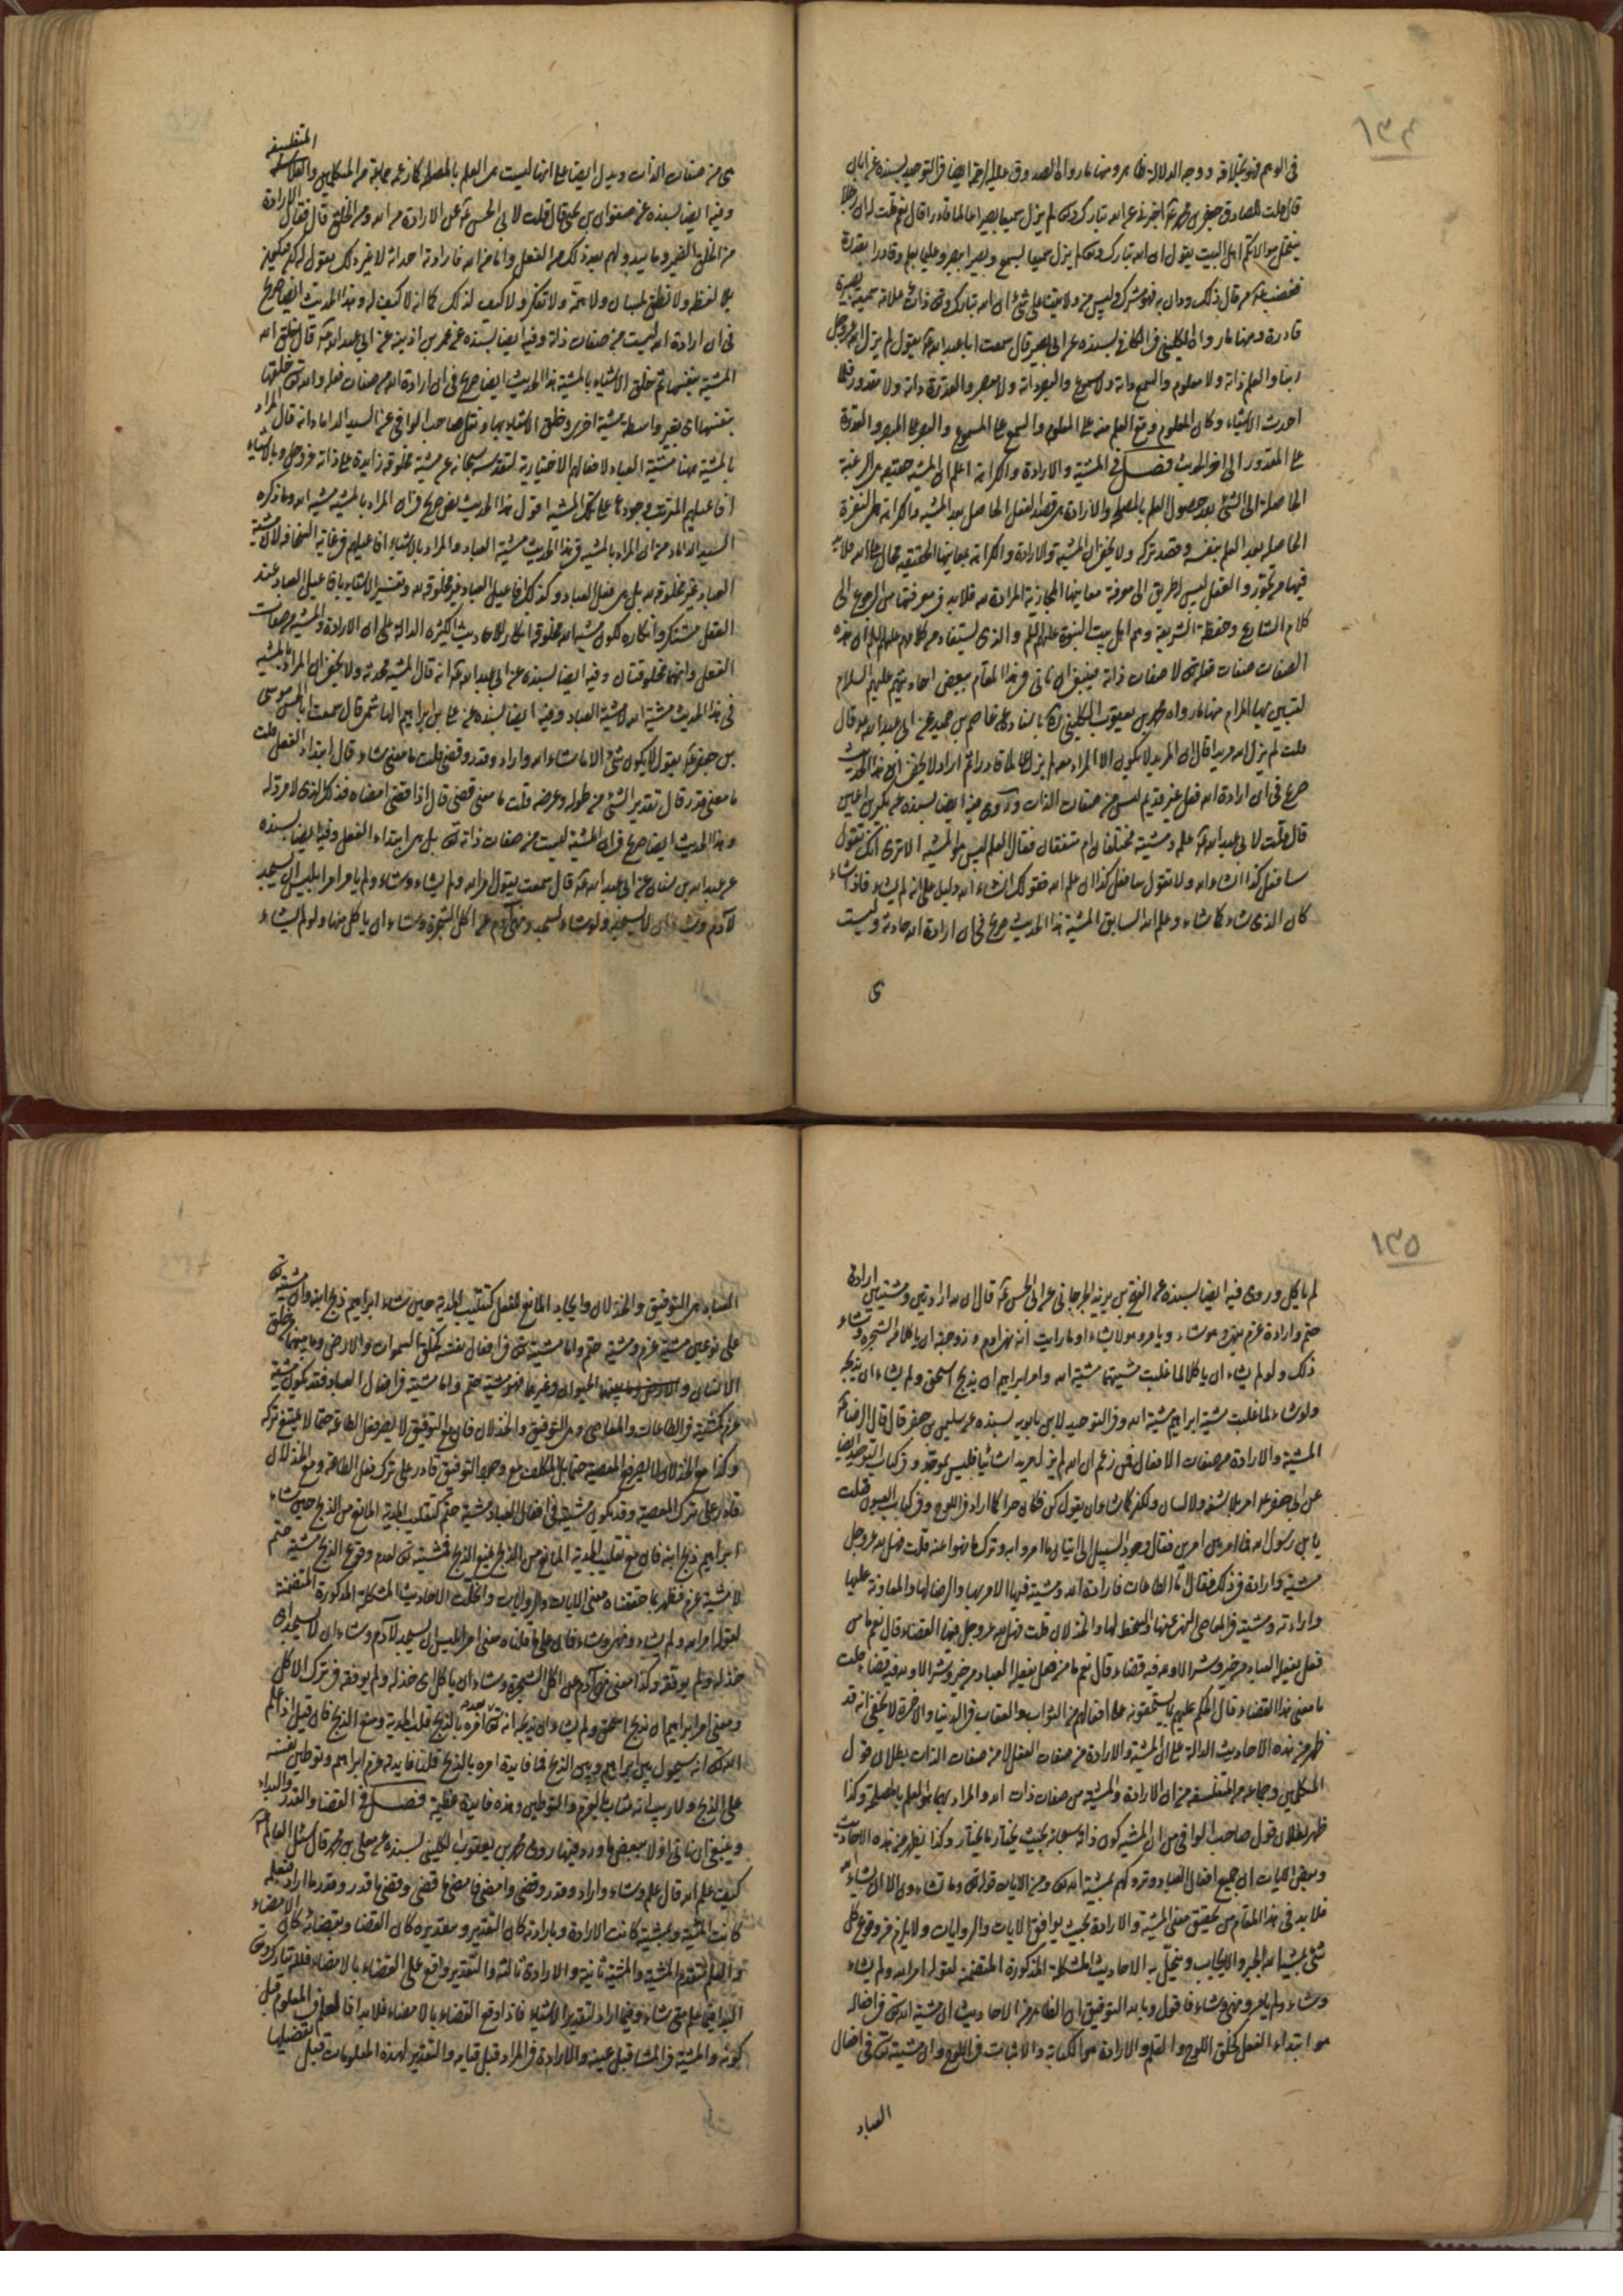 ١٣٤
في الوهم فهو بخلافه ووجه الدلالة ظاهر ومنها ما رواه الصدوق عليه الرحمة ايضا في التوحيد بسنده عن ابان
قال قلت للصادق جعفر بن محمد ع اخبرني عن الله تبارك وتعالى لم يزل سميعا بصيرا عالما قادرا قال نعم فقلت له ان رجلا
ينتحل موالاتكم اهل البيت يقول ان الله تبارك وتعالى لم يزل سميعا بسمع وبصيرا ببصر وعليما بعلم وقادرا بقدرة
فغضب ع ثم قال من قال ذلك ودان به فهو مشرك وليس من ولايتنا على شئ ان الله تبارك وتعالى ذات علامة سميعة بصيرة
قادرة ومنها ما رواه الكليني في الكافي بسنده عن ابي بصير قال سمعت ابا عبد الله ع يقول لم يزل الله عز وجل
ربنا والعلم ذاته ولا معلوم والسمع ذاته ولا مسموع والبصر ذاته ولا مبصر والقدرة ذاته ولا مقدور فلما
احدث الاشياء وكان المعلوم وقع العلم منه على المعلوم والسمع على المسموع والبصر على المبصر والقدرة
على المقدور الى اخر الحديث فصل في المشية والارادة والكراهة اعلم ان المشية حقيقة هي الرغبة
الحاصلة الى الشئ بعد حصول العلم بالمصلحة والارادة هي قصد الفعل الحاصل بعد المشية والكراهة هي النفرة
الحاصلة بعد العلم بنفسه وقصد تركه ولا يخفى ان المشية والارادة والكراهة بمعانيها الحقيقية محال على الله فلا بد
فيها من تجوز والعقل ليس له طريق الى معرفة معانيها المجازية المرادة منه فلا بد في معرفتها من الرجوع الى
كلام الشارع وحفظة الشريعة وهم اهل بيت النبوة عليهم السلم والذي يستفاد من كلامهم عليهم السلم ان هذه
الصفات صفات فعله تعالى لا صفات ذاته فينبغي ان ناتي في هذا المقام ببعض احاديثهم عليهم السلام
ليتبين بها المرام منها ما رواه محمد بن يعقوب الكليني باسناده عن عاصم بن حميد عن ابي عبد الله ع قال
قلت لم يزل الله مريدا قال ان المريد لا يكون الا المراد معه لم يزل الله عالما قادرا ثم اراد لا يخفى ان هذا الحديث
صريح في ان ارادة الله فعل غير قديم ليس من صفات الذات وروى فيه ايضا بسنده عن بكير بن اعين
قال قلت لابي عبد الله ع علم الله ومشيته مختلفان ام متفقان فقال العلم ليس هو المشية الا ترى انك تقول
سافعل كذا ان شاء الله ولا تقول سافعل كذا ان علم الله فقولك ان شاء الله دليل على انه لم يشاء فاذا شاء
كان الذي شاء كما شاء وعلم الله السابق المشية هذا الحديث صريح في ان ارادة الله حادثة وليست
ى
المتفلسفة
هى من صفات الذات ويدل ايضا على انها ليست هى العلم بالمصلحة كما زعمه جماعة من المتكلمين والفلاسفة
وفيه ايضا بسنده عن صفوان بن يحيى قال قلت لابي الحسن ع اخبرني عن الارادة من الله ومن الخلق قال فقال الارادة
من الخلق الضمير وما يبدو لهم بعد ذلك من الفعل واما من الله فارادته احداثه لا غير ذلك يقول له كن فيكون
بلا لفظ ولا نطق بلسان ولا همة ولا تفكر ولا كيف لذلك كما انه لا كيف له وهذا الحديث ايضا صريح
في ان ارادة الله ليست من صفات ذاته وفيه ايضا بسنده عن عمر بن اذينة عن ابي عبد الله ع قال خلق الله
المشية بنفسها ثم خلق الاشياء بالمشية هذا الحديث ايضا صريح في ان ارادة الله من صفات فعله والله تعالى خلقها
بنفسها اى بغير واسطة مشية اخرى وخلق الاشياء بها ونقل صاحب الوافي عن السيد الداماد انه قال المراد
بالمشية ههنا مشية العباد لافعالهم الاختيارية لتقدسه سبحانه عن مشية مخلوقة زايدة على ذاته عز وجل وبالاشياء
افاعيلهم المترتب وجودها على تلك المشية اقول هذا الحديث نص صريح في ان المراد بالمشية مشية الله وما ذكره
السيد الداماد من ان المراد بالمشية في هذا الحديث مشية العباد والمراد بالاشياء افاعيلهم في غاية السخافة لان مشية
العباد غير مخلوقة لله بل هى فعل العباد وكذلك افاعيل العباد غير مخلوقة لله وتفسير الاشياء بافاعيل العباد عند
العقل مستنكر وانكاره لكون مشية الله مخلوقة انكار للاحاديث الكثيرة الدالة على ان الارادة والمشية من صفات
الفعل وانهما مخلوقتان وفيه ايضا بسنده عن ابي عبد الله ع انه قال المشية محدثة ولا يخفى ان المراد بالمشية
في هذا الحديث مشية الله لا مشية العباد وفيه ايضا بسنده عن علي بن ابراهيم الهاشمي قال سمعت ابا الحسن موسى
بن جعفر ع يقول لا يكون شئ الا ما شاء الله واراد وقدر وقضى قلت ما معنى شاء قال ابتداء الفعل قلت
ما معنى قدر قال تقدير الشئ من طوله وعرضه قلت ما معنى قضى قال اذا قضى امضاه فذلك الذي لا مرد له
وهذا الحديث ايضا صريح في ان المشية ليست من صفات ذاته تعالى بل هى ابتداء الفعل وفيه ايضا بسنده
عن عبد الله بن سنان عن ابي عبد الله ع قال سمعت يقول امر الله ولم يشاء وشاء ولم يامر امر ابليس ان يسجد
لآدم وشاء ان لا يسجد ولو شاء لسجد ونهى آدم عن اكل الشجرة وشاء ان ياكل منها ولو لم يشاء
١٣٥
لم ياكل وروى فيه ايضا بسنده عن الفتح بن يزيد الجرجاني عن ابي الحسن ع قال ان لله ارادتين ومشيتين ارادة
حتم وارادة عزم ينهى وهو يشاء ويامر وهو لا يشاء اوما رايت انه نهى آدم وزوجته ان ياكلا من الشجرة وشاء
ذلك ولو لم يشاء ان ياكلا لما غلبت مشيتهما مشية الله وامر ابراهيم ان يذبح اسحق ولم يشاء ان يذبحه
ولو شاء لما غلبت مشية ابراهيم مشية الله وفي التوحيد لابن بابويه بسنده عن سليمان بن جعفر قال قال الرضا ع
المشية والارادة من صفات الافعال فمن زعم ان الله لم يزل مريدا شائيا فليس بموحد وفي كتاب التوحيد ايضا
يا بن رسول الله فما امر بين امرين فقال وجود السبيل الى اتيان ما امروا به وترك ما نهوا عنه قلت فهل لله عز وجل
مشية وارادة في ذلك فقال اما الطاعات فارادة الله ومشيته فيها الامر بها والرضا لها والمعاونة عليها
وارادته ومشيته في المعاصي النهي عنها والسخط لها والخذلان قلت فهل لله عز وجل فيها القضاء قال نعم ما من
فعل يفعله العباد من خير وشر الا ولله فيه قضاء قلت
ما معنى هذا القضاء قال الحكم عليهم بما يستحقونه على افعالهم من الثواب والعقاب في الدنيا والاخرة لا يخفى انه قد
ظهر من هذه الاحاديث الدالة على ان المشية والارادة من صفات الفعل لا من صفات الذات بطلان قول
المتكلمين وجماعة من المتفلسفة من ان الارادة والمشية من صفات ذات الله والمراد بهما هو العلم بالمصلحة وكذا
ظهر بطلان قول صاحب الوافي من ان المشية كون ذاته سبحانه بحيث يختار ما يختار وكذا يظهر من هذه الاحاديث
وبعض الايات ان جميع افعال العباد وتروكهم بمشية الله تعالى ومن الايات قوله تعالى وما تشاءون الا ان يشاء الله
فلا بد في هذا المقام من تحقيق معنى المشية والارادة بحيث يوافق الايات والروايات ولا يلزم من وقوع كل
شئ بمشية الله الجبر والايجاب وينحل به الاحاديث المشكلة المذكورة المتضمنة لقوله امر الله ولم يشاء
وشاء ولم يامر ونهى وشاء فاقول وبالله التوفيق ان الظاهر من الاحاديث ان مشية الله تعالى في افعاله
هو ابتداء الفعل كخلق اللوح والقلم والارادة هو الكتابة والاثبات في اللوح وان مشيته تعالى في افعال
العباد
العباد هى التوفيق والخذلان وايجاد المانع للفعل كتقليب المدية حين شاء ابراهيم ذبح ابنه وان مشيته تعالى
على نوعين مشية عزم ومشية حتم واما مشيته تعالى في افعال نفسه كخلق السموات والارض وما بينهما وخلق
الانسان والحيوان وغيرها فهو مشية حتم واما مشيته في افعال العباد فقد تكون مشية
عزم كمشيته في الطاعات والمعاصي وهى التوفيق والخذلان فان مع التوفيق لا يصير فعل الطاعة حتما لا يمتنع تركه
وكذا مع الخذلان لا يصير فعل المعصية حتما بل المكلف مع وجود التوفيق قادر على ترك فعل الطاعة ومع الخذلان
قادر على ترك المعصية وقد يكون مشيته في افعال العباد مشية حتم كتقليب المدية المانع من الذبح حين شاء
ابراهيم ذبح ابنه فان مع تقليب المدية المانع من الذبح يمتنع الذبح فمشيته تعالى لعدم وقوع الذبح مشية حتم
لا مشية عزم فظهر بما حققناه معنى الايات والروايات وانحلت الاحاديث المشكلة المذكورة المتضمنة
لقوله امر الله ولم يشاء ونهى وشاء فان على ما قلناه معنى امر ابليس ان يسجد لآدم وشاء ان لا يسجد اى
خذله ولم يوفقه وكذا معنى نهى آدم عن اكل الشجرة وشاء ان ياكل اى خذله ولم يوفقه في ترك الاكل
ومعنى امر ابراهيم ان يذبح اسحق ولم يشاء ان يذبحه انه تعالى بعد امره بالذبح قلب المدية ومنع الذبح فان قيل اذا علم
الله تعالى انه سيحول بين ابراهيم وبين الذبح فما فايدة امره بالذبح قلنا فايدته عزم ابراهيم وتوطين نفسه
على الذبح ولا ريب انه مثاب بالعزم والتوطين وهذه فايدة عظيمة فصل في القضا والقدر والبداء
وينبغي ان ناتي اولا ببعض ما ورد فيها روى محمد بن يعقوب الكليني بسنده عن معلى بن محمد قال سئل العالم ع
كيف علم الله قال علم وشاء واراد وقدر وقضى وامضى فامضى ما قضى وقضى ما قدر وقدر ما اراد فبعلمه
كانت المشية وبمشيته كانت الارادة وبارادته كان التقدير وبتقديره كان القضا وبقضائه كان الامضاء
والعلم متقدم المشية والمشية ثانية والارادة ثالثة والتقدير واقع على القضاء بالامضاء فلله تبارك وتعالى
البدا فيما علم متى شاء وفيما اراد لتقدير الاشياء فاذا وقع القضاء بالامضاء فلا بدا فالعلم في المعلوم قبل
كونه والمشية في المشا قبل عينه والارادة في المراد قبل قيامه والتقدير لهذه المعلومات قبل تفصيلها